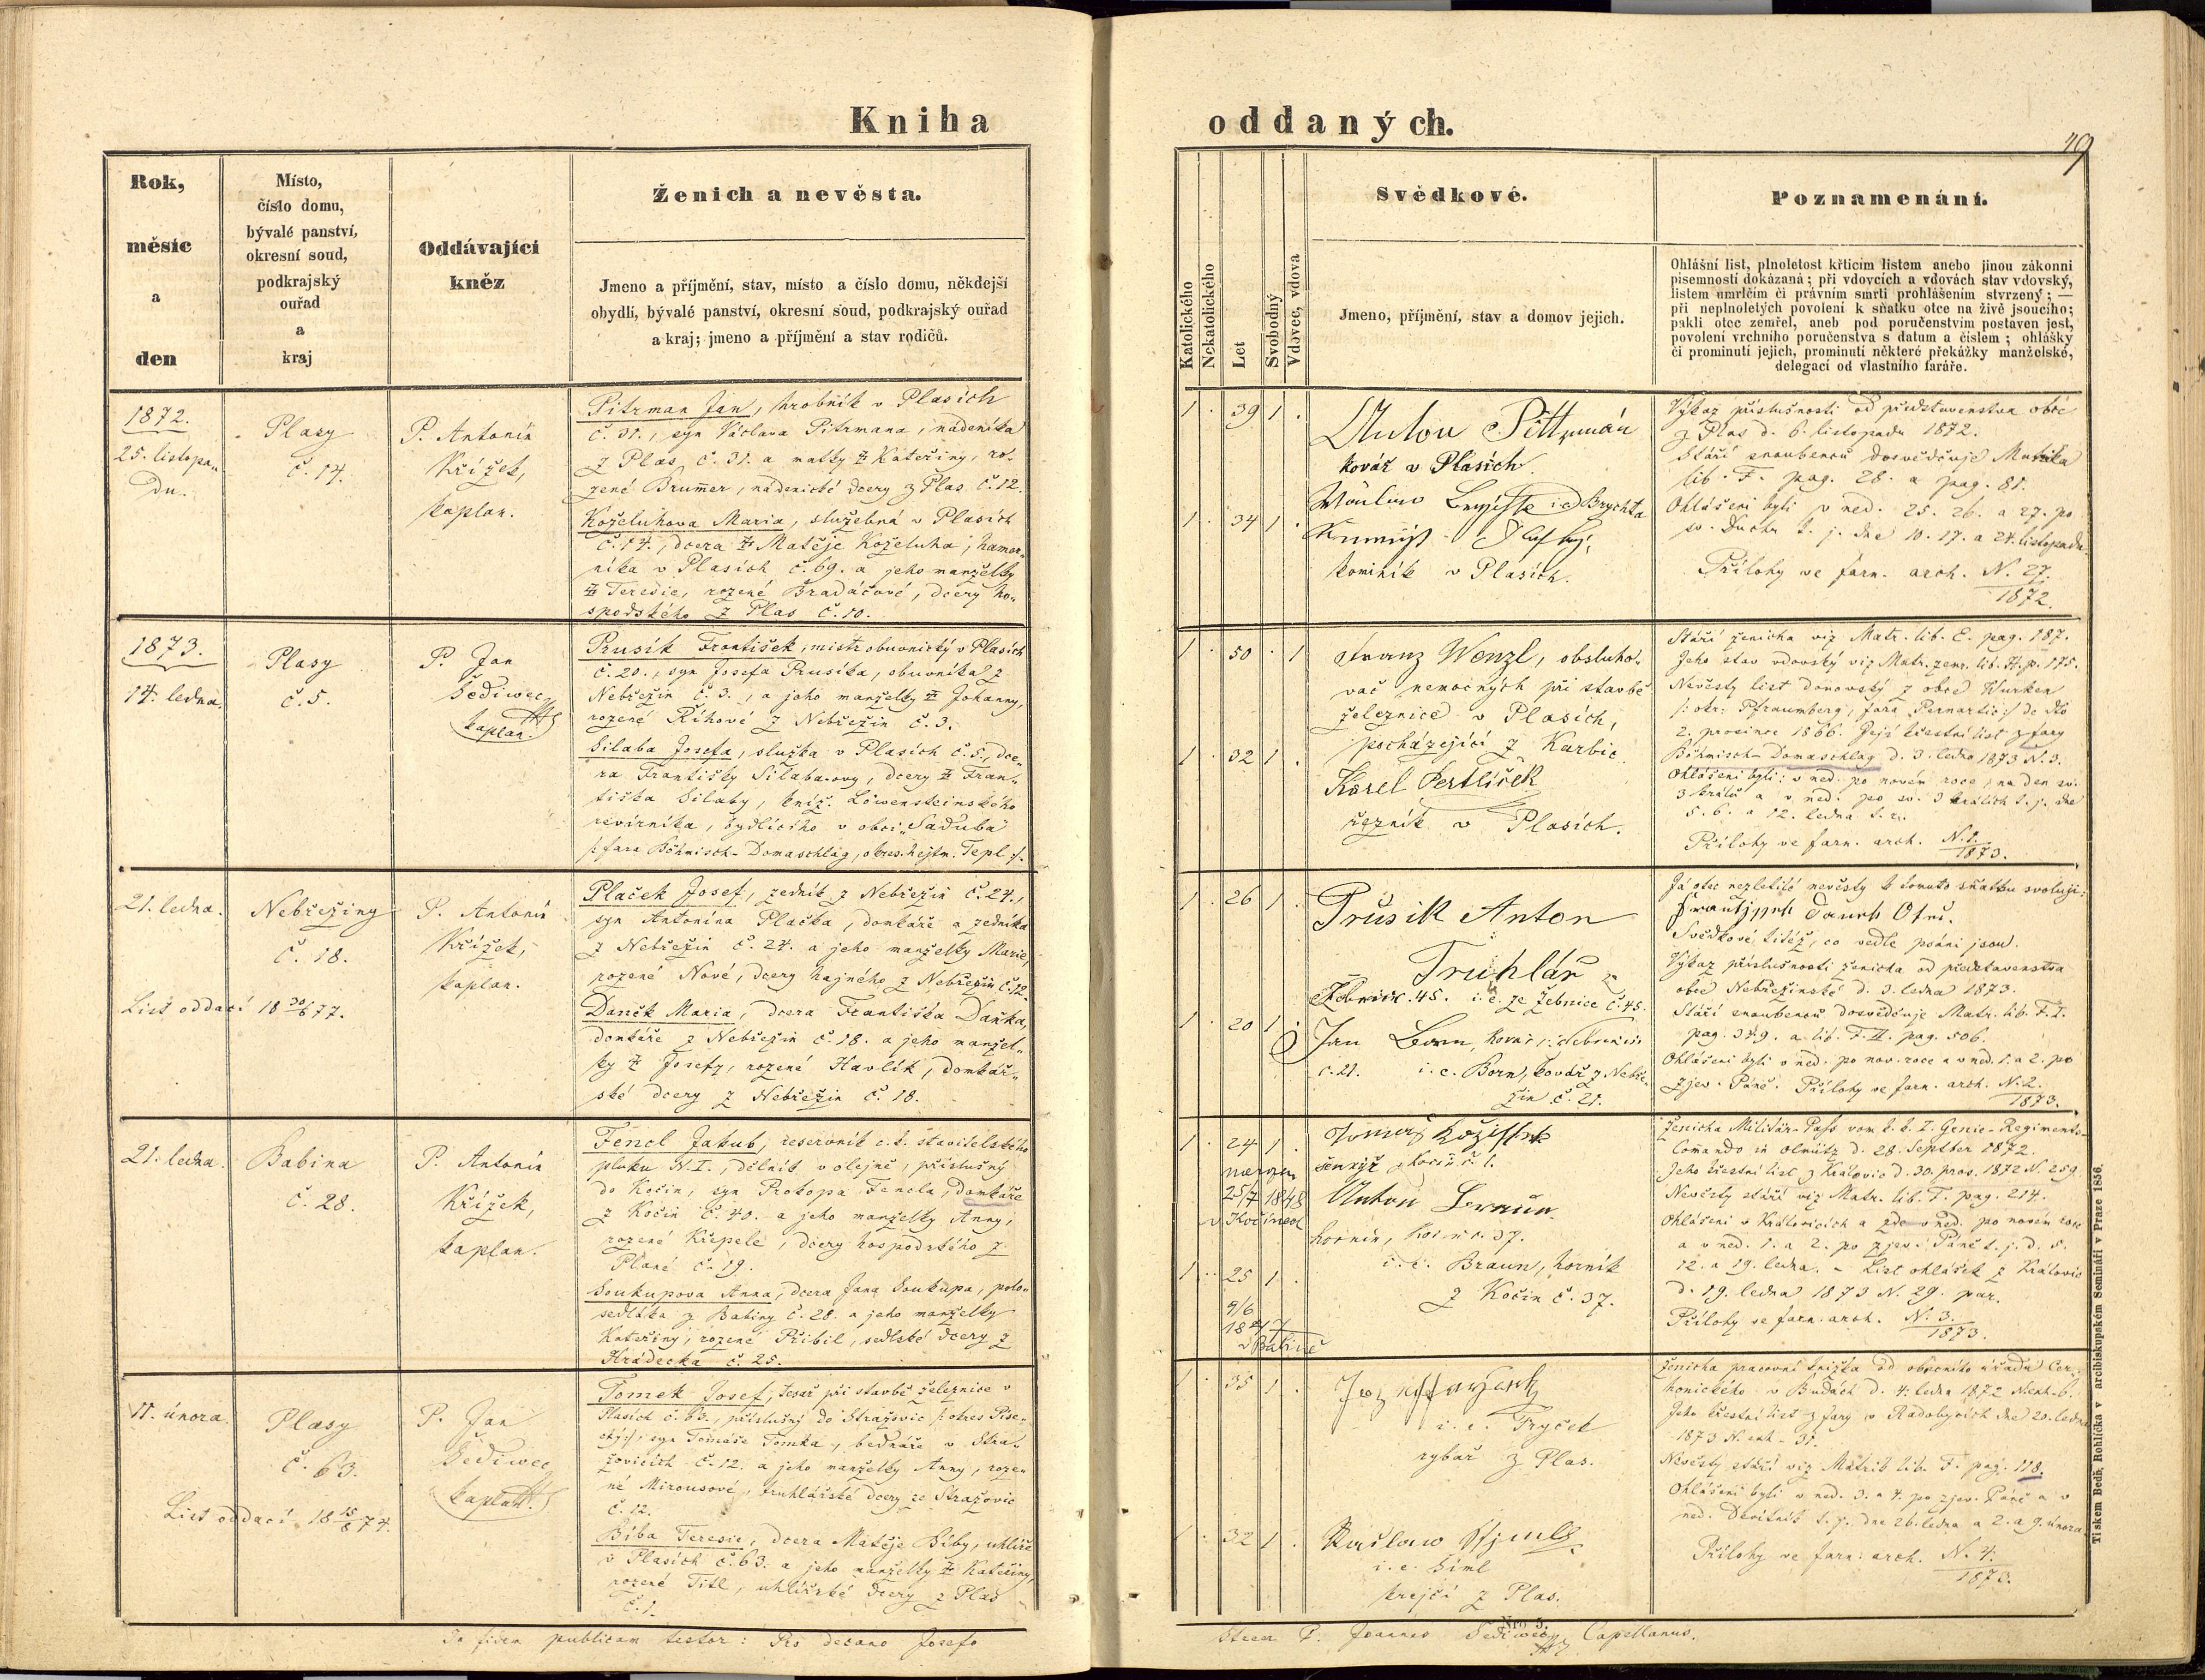 Kniha
Rok,
měsíc
a
den
Místo,
číslo domu,
bývalé panství,
okresní soud,
podkrajský
ouřad
a
kraj
Oddávající
kněz
Ženich a nevěsta.
Jmeno a příjmění, stav, místo a číslo domu, někdejší
obydlí, bývalé panství, okresní soud, podkrajský ouřad
a kraj; jmeno a příjmění a stav rodičů.
1872.
25. listopa-
du.
Plasy
č. 14.
P. Antonín
Křížek,
kaplan.
Pitrman Jan, hrobník v Plasích
č. 31., syn Václava Pitrmana, nádeníka
z Plas č. 31. a matky Kateřiny, ro-
zené Brummer, nádenické dcery z Plas č. 12.
Koželuhova Maria, služebná v Plasích
č. 14., dcera Matěje Koželuha, hamer-
níka v Plasích č. 69. a jeho manželky
Teresie, rozené Bradáčové, dcery ho-
spodského z Plas č. 10.
1873.
14. ledna.
Plasy
č. 5.
P. Jan
Šediwec
kaplan.
Prusík František, mistr obuvnický v Plasích
č. 20., syn Josefa Prusíka, obuvníka z
Nebřežin č. 3., a jeho manželky Johanny,
rozené Říhové z Nebřežin č. 3.
Silaba Josefa, služka v Plasích č. 5., dce-
ra Františky Silaba-ovy, dcery Fran-
tiška Silaby, kníž. Löwensteinského
revírníka, bydlícího v obci „Saduba"
/: fara Böhmisch-Domaschlag, okres. hejtm. Tepl :/.
21. ledna.
Nebřeziny
č. 18.
List oddací 18 30/6 77.
P. Antonín
Křížek,
kaplan.
Plaček Josef, zedník z Nebřežin č. 24.,
syn Antonína Plačka, domkáře a zedníka
z Nebřežin č. 24. a jeho manželky Marie,
rozené Nové, dcery hajného z Nebřežin č. 12.
Daněk Maria, dcera Františka Daňka,
domkáře z Nebřežin č. 18. a jeho manžel-
ky Josefy, rozené Havlík, domkář-
ské dcery z Nebřežin č. 18.
21. ledna.
Babina
č. 28.
P. Antonín
Křížek,
kaplan.
Fencl Jakub, reservník c. k. stavitelského
pluku N. I., dělník v olejně, příslušný
do Kočin, syn Prokopa Fencla, domkáře
z Kočin č. 40. a jeho manželky Anny,
rozené Křepele, dcery hospodského z
Plané č. 19.
Soukupova Anna, dcera Jana Soukupa, polo-
sedláka z Babiny č. 28. a jeho manželky
Kateřiny, rozené Přibil, sedlské dcery z
Hrádecka č. 25.
11. února.
Plasy
č. 63.
List oddací 18 15/8 74.
P. Jan
Šediwec
kaplan.
Tomek Josef, tesař při stavbě železnice v
Plasích č. 63., příslušný do Stražovic /: okres Píse-
cký :/, syn Tomáše Tomka, bednáře v Stra-
žovicích č. 12. a jeho manželky Anny, roze-
né Mirousové, truhlářské dcery ze Stražovic
č. 12.
Bíba Teresie, dcera Matěje Bíby, uhlíře
v Plasích č. 63. a jeho manželky Kateřiny,
rozené Titl, uhlířské dcery z Plas
č. 1.
In fidem publicam testor: Pro decano Josefo
oddaných.
49
Katolického
Nekatolického
Let
Svobodný
Vdovec, vdova
Svědkové.
Jmeno, příjmění, stav a domov jejich.
Poznamenání.
Ohlášní list, plnoletost křticím listem anebo jinou zákonní
písemností dokázaná; při vdovcích a vdovách stav vdovský,
listem umrlčím či právním smrti prohlášením stvrzený; —
při neplnoletých povolení k sňatku otce na živě jsoucího;
pakli otec zemřel, aneb pod poručenstvím postaven jest,
povolení vrchního poručenstva s datum a číslem; ohlášky
či prominutí jejich, prominutí některé překážky manželské,
delegací od vlastního faráře.
1 . 39 1 .
1 . 34 1 .
Anton Pittrmán
kovář v Plasích.
Brychta
kominík v Plasích.
Výkaz příslušnosti od představenstva obce
z Plas d. 6. listopadu 1872.
Stáří snoubenců dosvědčuje Matrika
lib. F. pag. 28. a pag. 81.
Ohlášeni byli v ned. 25. 26. a 27. po
sv. Duchu t. j. dne 10. 17. a 24. listopadu.
Přílohy ve farn. arch. N. 27.
1872.
1 . 50 . 1
1 . 32 1 .
Franz Wenzl, obsluho-
vač nemocných při stavbě
železnice v Plasích,
pocházející z Karbic.
Karel Pertlíček
řezník v Plasích.
Stáří ženicha viz Matr. lib. E. pag. 187.
Jeho stav vdovský viz Matr. zemř. lib. H. p. 175.
Nevěsty list domovský z obce Wurken
/: okr: Pfraumberg, fara Pernartic :/ de dto
2. prosince 1866. Její křestní list z fary
Böhmisch-Domaschlag d. 3. ledna 1873 N. 3.
Ohlášeni byli: v ned. po novém roce, na den sv.
3 králů a v ned. po sv. 3 králích t. j. dne
5. 6. a 12. ledna t. r.
Přílohy ve farn. arch. N. 1.
1873.
1 . 26 1 .
1 . 20 1 .
Průsik Anton
Truhlář
Žebnic. 45. i. e. ze Žebnice č. 45.
Jan Born, kovář
č. 21. i. e. Born, kovář z Nebře-
žin č. 21.
Já otec nezletilé nevěsty k tomuto sňatku svoluji:
Svědkové titéž, co vedle psáni jsou.
Výkaz příslušnosti ženicha od představenstva
obce Nebřežinské d. 3. ledna 1873.
Stáří snoubenců dosvědčuje Matr. lib. F. I.
pag. 349. a lib. F. II. pag. 506.
Ohlášeni byli v ned. po nov. roce a v ned. 1. a 2. po
zjev. Páně. Přílohy ve farn. arch. N. 2.
1873.
1 . 24 1 .
narozen
25/7 1848
v Kočinech
1 . 25 1 .
9/6
1847
v Babině
Kočin č. 1.
Anton Braun
horník, Kočin č. 37.
i. e. Braun, horník
z Kočin č. 37.
Ženicha Militär-Pass vom k. k. I. Genie-Regiments-
Commando in Olmütz d. 28. September 1872.
Jeho křestní list z Kralovic d. 30. pros. 1872 N. 259.
Nevěsty stáří viz Matr. lib. T. pag. 214.
Ohlášeni v Kralovicích a zde v ned. po novém roce
a v ned. 1. a 2. po zjev. Páně t. j. d. 5.
12. a 19. ledna. - List ohlášek z Kralovic
d. 19. ledna 1873 N. 29. par.
Přílohy ve farn. arch. N. 3.
1873.
1 . 35 1 .
1 . 32 1 .
i. e. Tryček
rybář z Plas.
i. e. Siml
krejčí z Plas.
Ženicha pracovní knížka od obecního úřadu Cer-
honického v Budách d. 4. ledna 1872
Jeho křestní list z fary v Radobycích dne 20. ledna
1873 N. exh. 31.
Nevěsty stáří viz Matrik lib. F. pag. 118.
Ohlášeni byli v ned. 3. a 4. po zjev. Páně a v
ned. Devítník t. j. dne 26. ledna a 2. a 9. února.
Přílohy ve farn. arch. N. 4.
1873.
Nro 5.
P. Joannes Šediwec Capellanus.
Tiskem Bedř. Rohlíčka v arcibiskupském Semináři v Praze 1856.